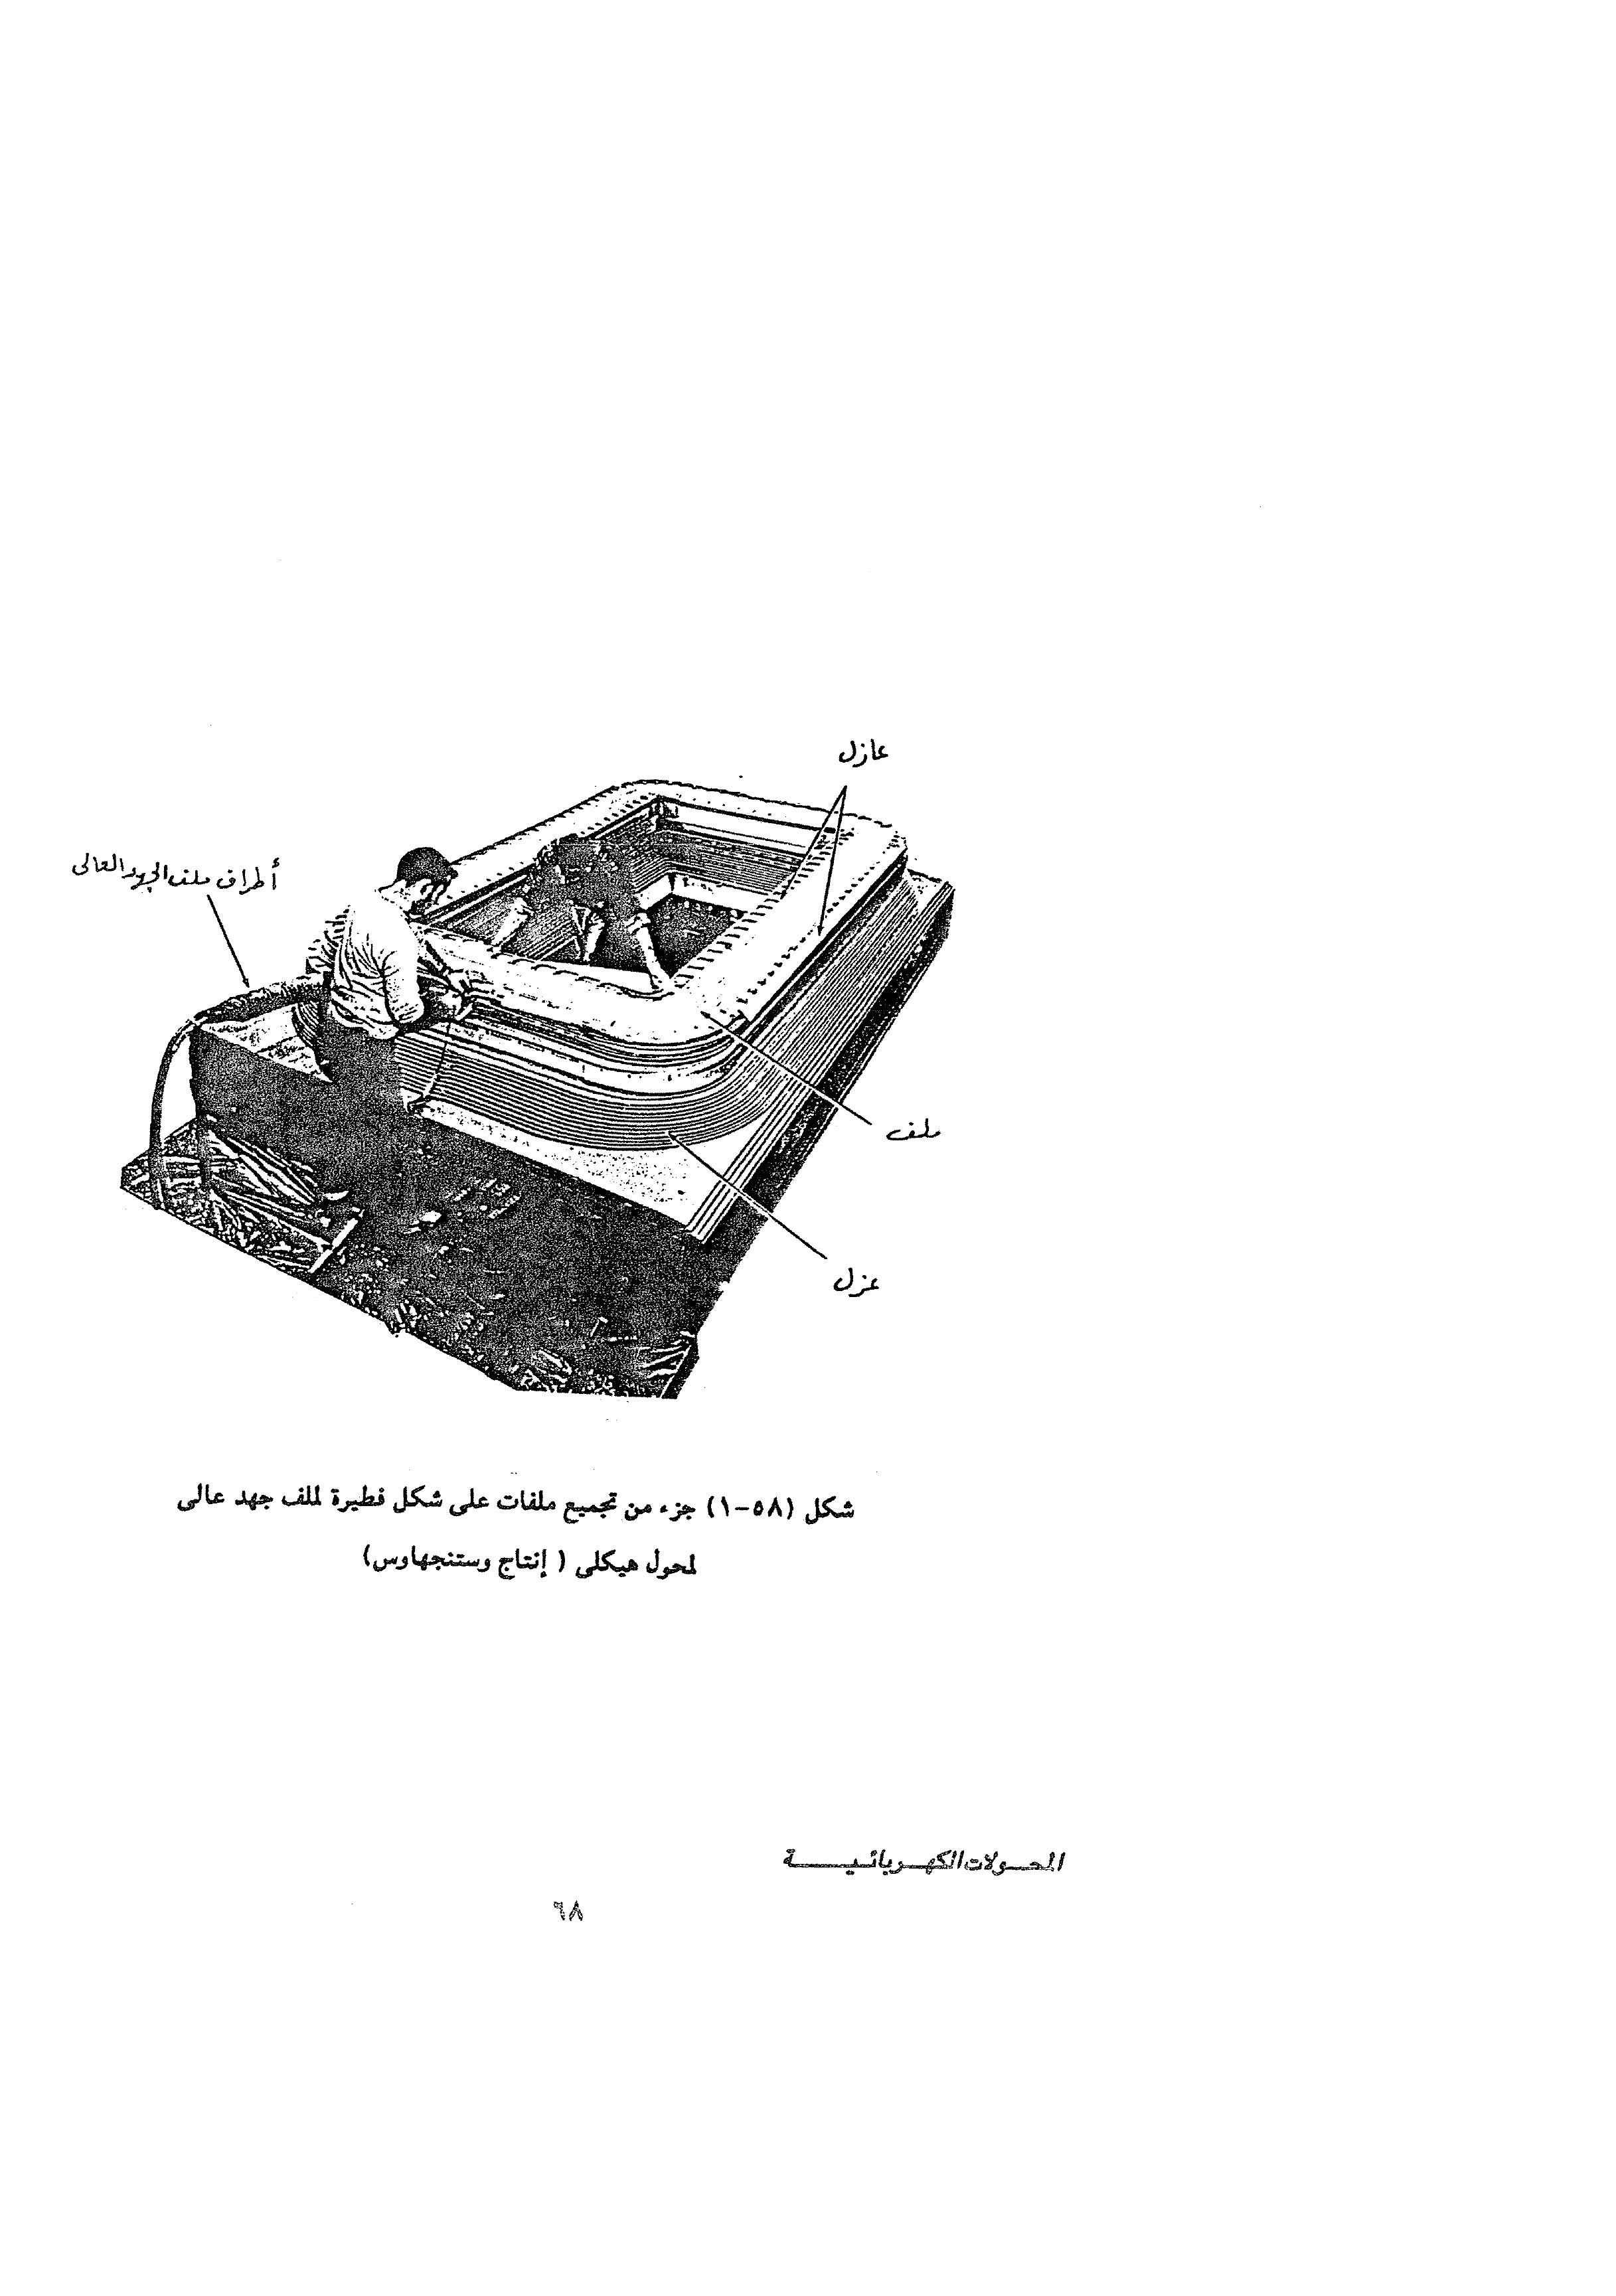 عازل
أطراف ملف الجهد العالى
ملف
عزل
شكل (٥٨-١) جزء من تجميع ملفات على شكل فطيرة لملف جهد عالى
لمحول هيكلى ( إنتاج وستنجهاوس)
المحولات الكهربائية
٦٨